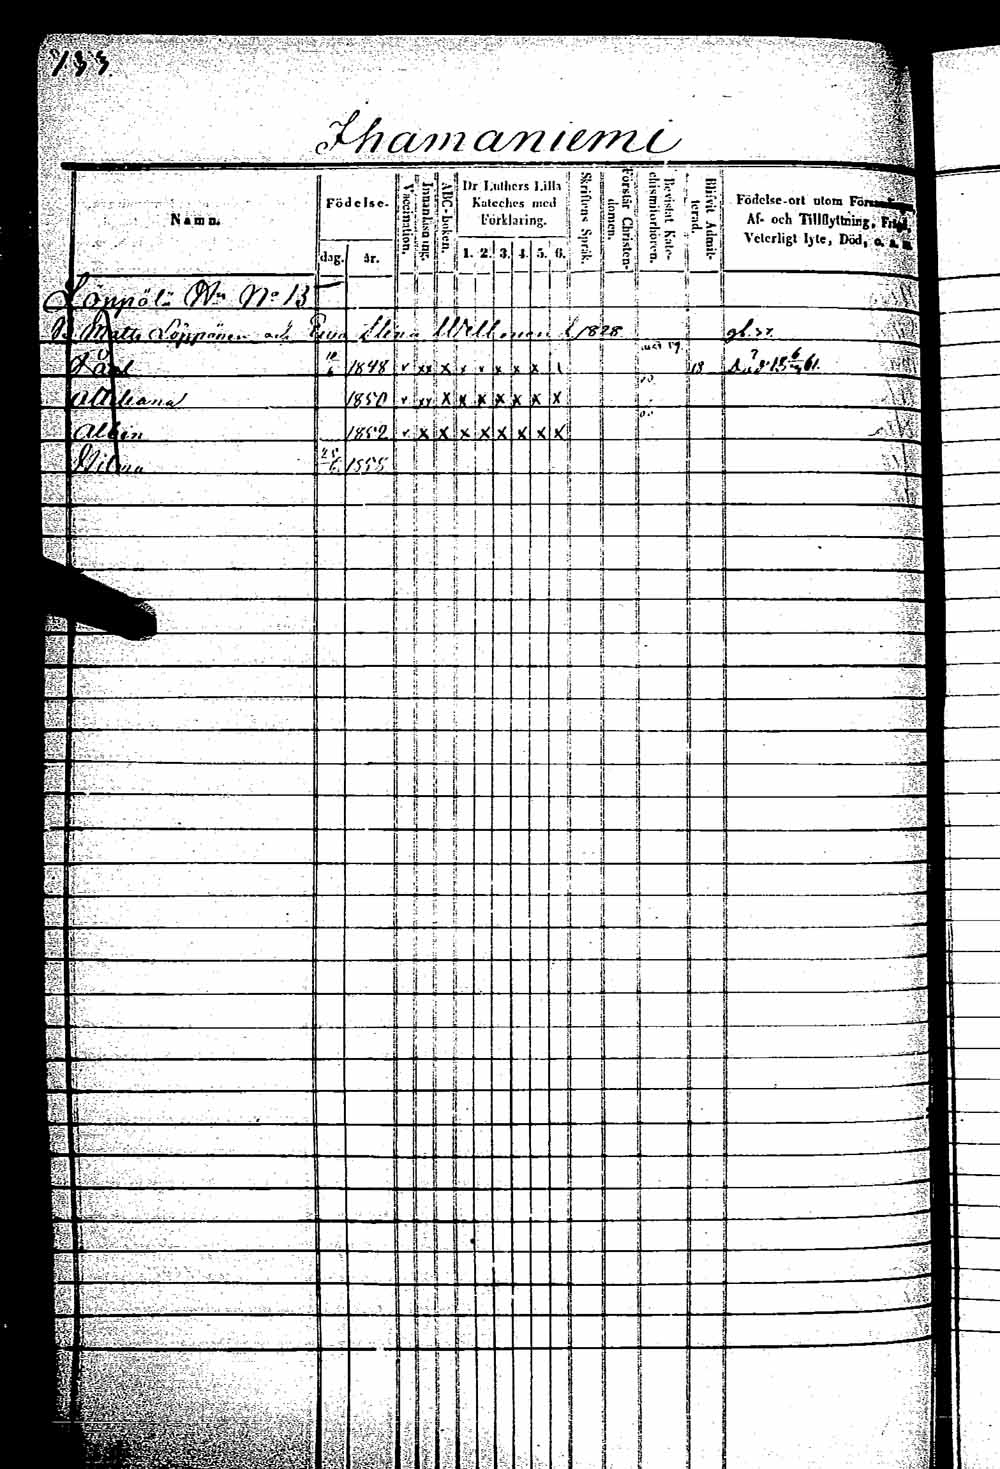 133
Ihamaniemi
Namn.
Födelse-
dag. år.
Vaccination.
Innanläsning.
ABC-boken.
Dr Luthers Lilla
Kateches med
Förklaring.
1. 2. 3. 4. 5. 6.
Skriftens Språk.
Förstår Christen-
domen.
Bevistat Kate-
chismiförhören.
Blifvit Admit-
terad.
Födelse-ort utom
Af- och Tillflyttning,
Veterligt lyte, Död, o. s. v.
Löppölä N:o 13
Matts Löppönen Eva Elena 1828
1848 v xx x x x x x x 18
1850 v xx x x x x x x x
Albin 1852 v x x x x x x x x
Vilma 1855